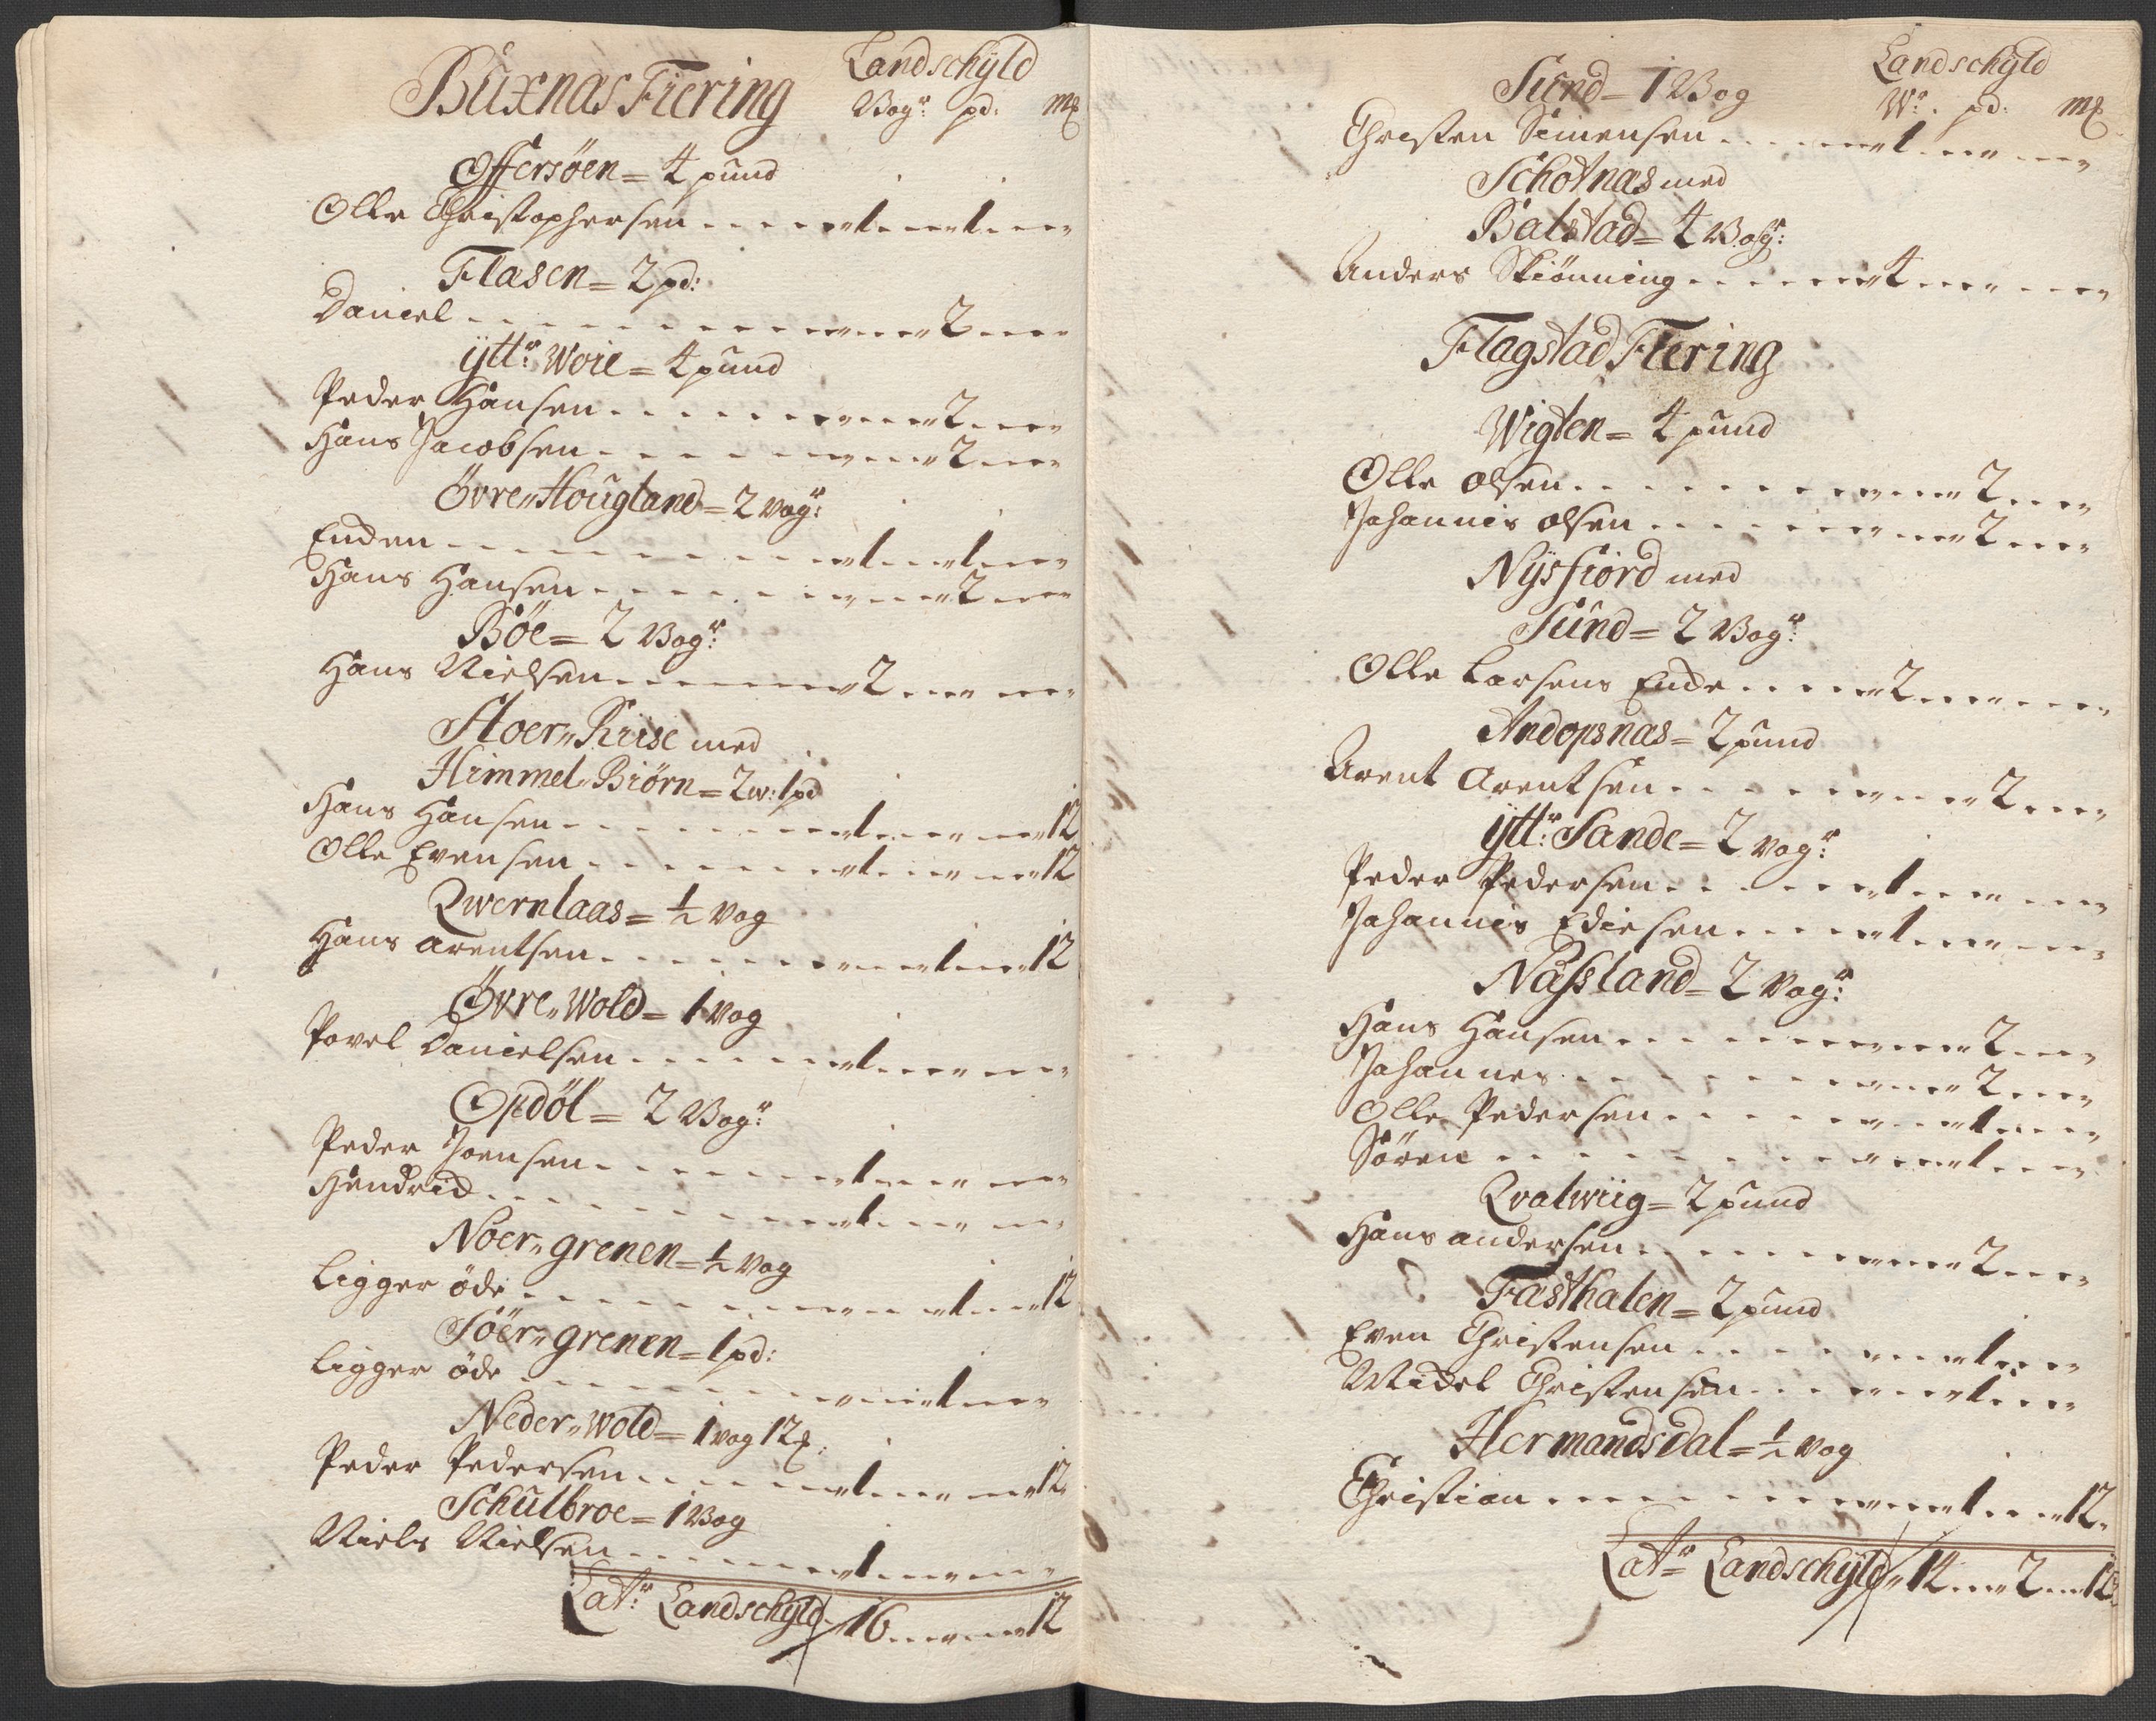 Buxnas Fiering Landschyld
Vogr pd: m℔
Offersöen = 4 pund
Olle Christophersen 1 1
Flasen = 2 pd:
Daniel 2
ÿttr: Woie = 4 pund
Peder Hansen 2
Hans Jacobsen 2
Övre Hougland = 2 vogr:
Enden 1 1
Hans Hansen 2
Böe = 2 Vogr:
Hans Nielsen 2
Stoer Riise med
Himmel Biörn = 2 w: 1 pd
Hans Hansen 1 12
Olle Evensen 1 12
Qwernlaas = ½ vog
Hans Arentsen 1 12
Övre Wold = 1 vog
Povel Danielsen 1
Opdöl = 2 Vogr:
Peder Joensen 1
Hendrid 1
Noer grenen = ½ vog
Ligger öde 1 12
Söer grenen = 1 pd:
Ligger öde 1
Neder Wold = 1 vog 12 ℔:
Peder Pedersen 1 12
Schulbroe = 1 Vog
Niels Nielsen 1
Latr: Landschyld 16 12
Sund = 1 Vog Landschyld
Wr: pd: m℔
Christen Simensen 1
Schotnas med
Balstad = 4 Vogr:
Anders Skiönning 4
Flagstad Fiering
Wigten = 4 pund
Olle Olsen 2
Johannis Olsen 2
Nysfiord med
Sund = 2 Vogr:
Olle Larsens Enke 2
Andopsnas = 2 pund
Arent Arentsen 2
ÿttr: Sande = 2 vogr:
Peder Pedersen 1
Johannis Edisen 1
Nassland = 2 vogr:
Hans Hansen 2
Johannes 2
Olle Pedersen 1
Sören 1
Qvalwiig = 2 pund
Hans Andersen 2
Fasthalen = 2 pund
Even Christensen 1
Mickel Christensen 1
Hermandsdal = ½ vog
Christian 1 12
Latr Landschyld 14 2 12